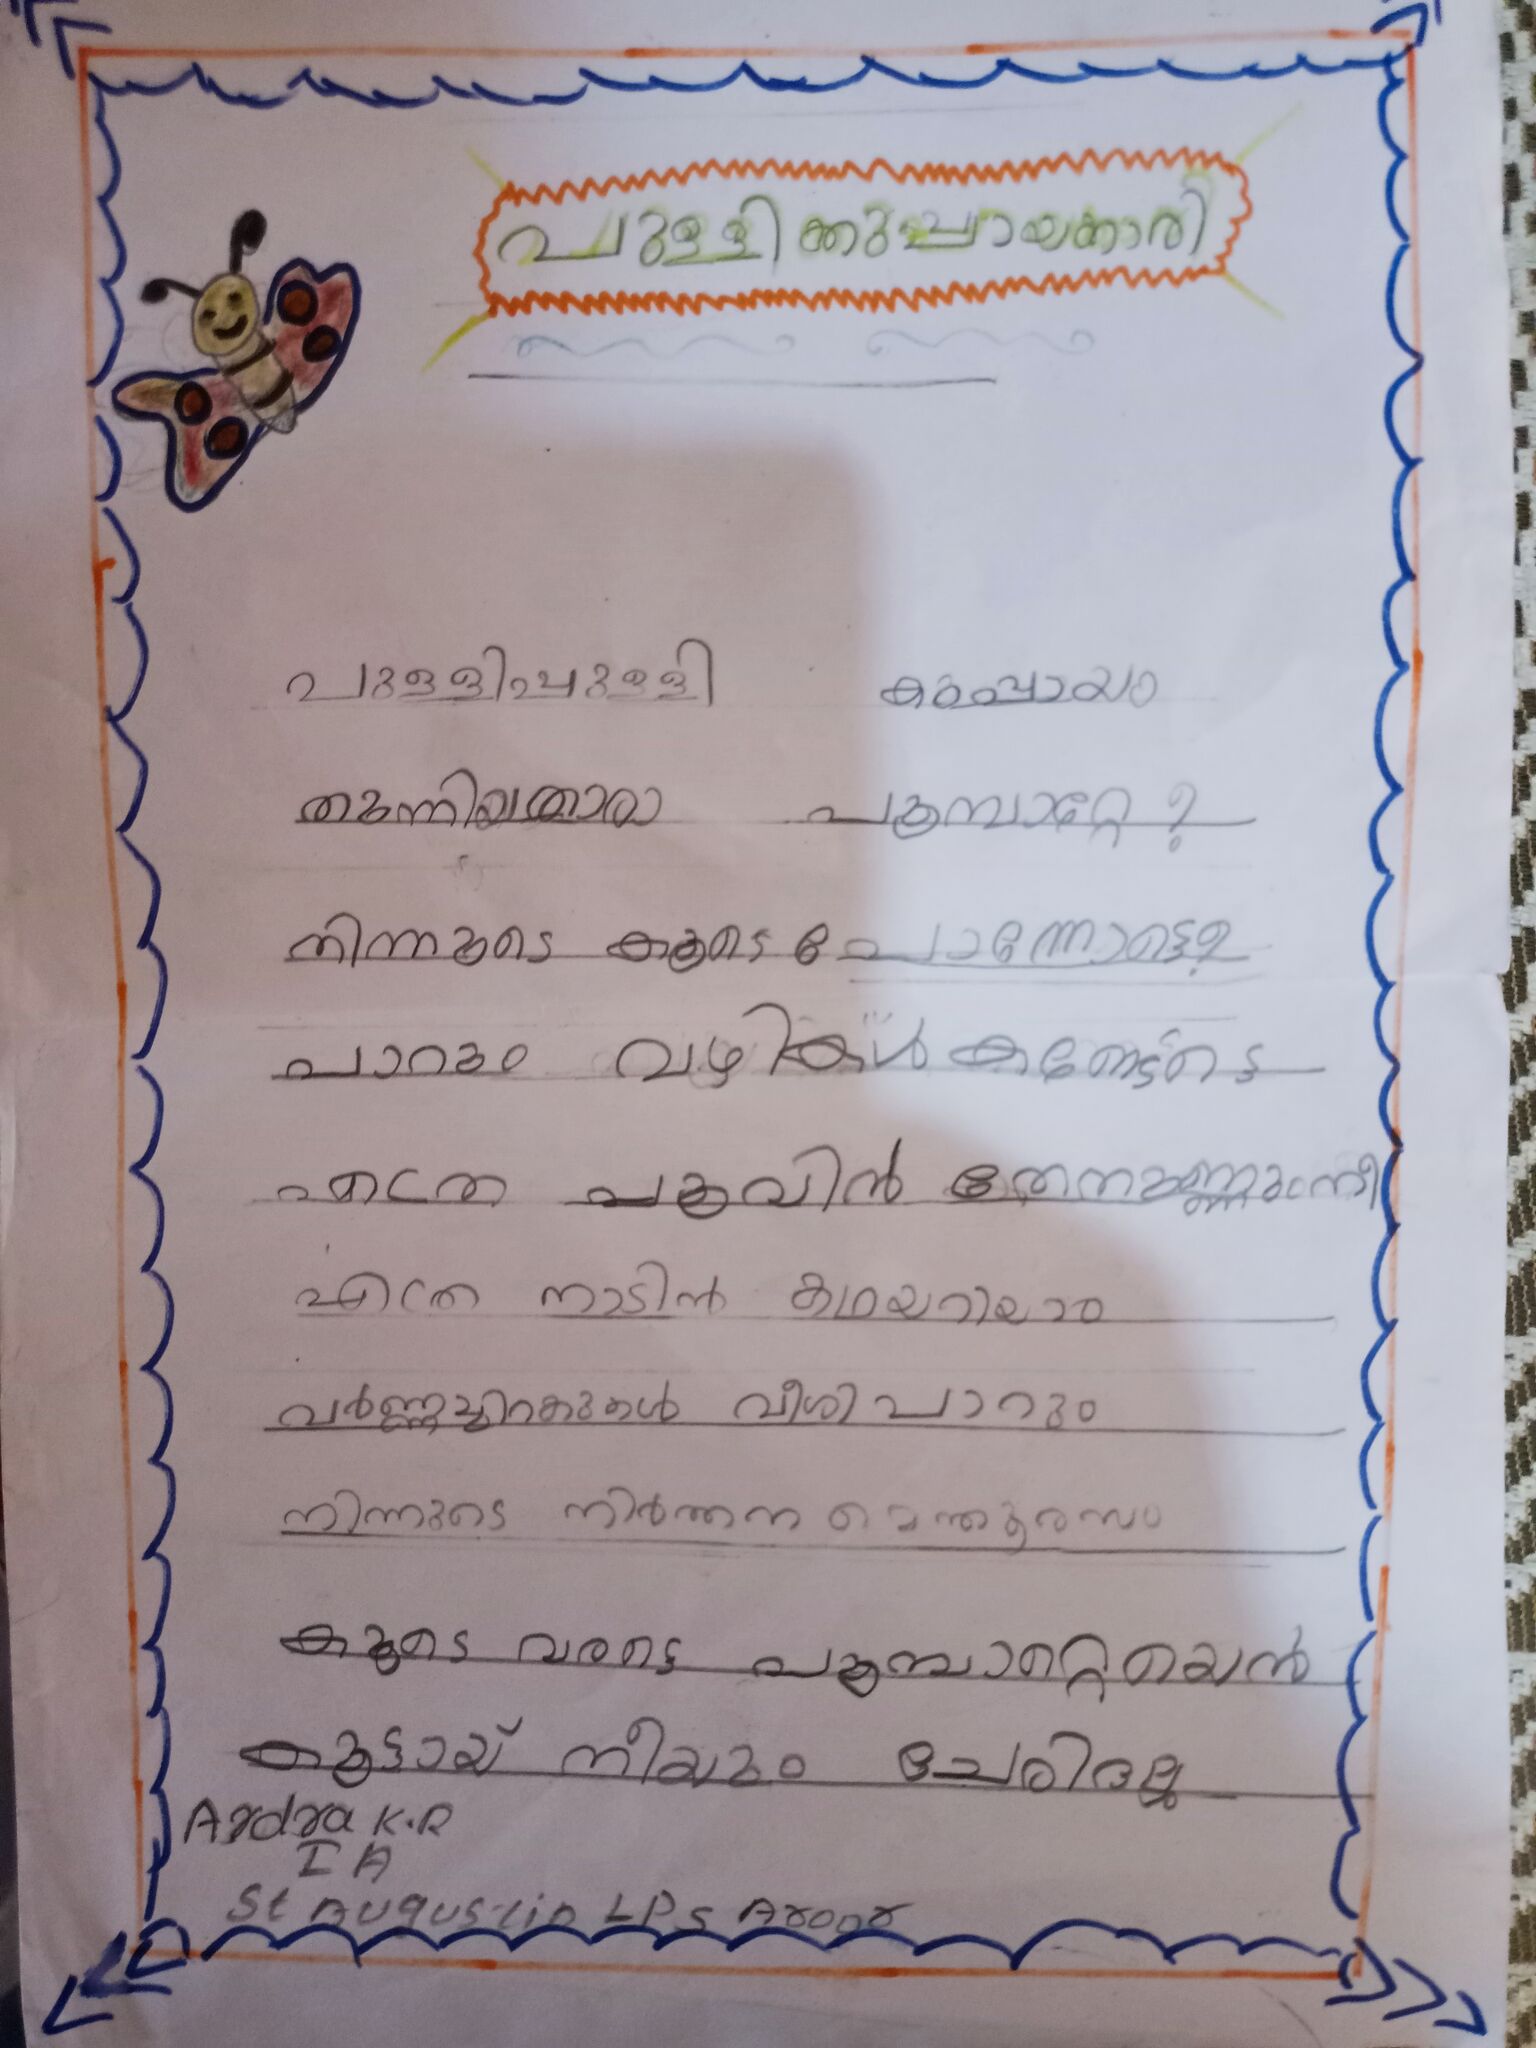 പുള്ളിക്കുപ്പായക്കാരി
പുള്ളിപ്പുള്ളി കുപ്പായം
തുന്നിയതാരാ പൂമ്പാറ്റേ ?
നിന്നുടെ കൂടെ പോന്നോട്ടെ?
പാറും വഴികൾ കണ്ടോട്ടെ
എത്ര പൂവിൻ തേനുണ്ണും നീ
എത്ര നാടിൻ കഥയറിയാം
വർണ്ണച്ചിറകുകൾ വീശി പാറും
നിന്നുടെ നിർത്തന മെന്തുരസം
കൂടെ വരട്ടെ പൂമ്പാറ്റെയെൻ
കൂട്ടായ് നീയും ചേരില്ലെ
Ardra K.R
I A
St Augustin LPS Aroor